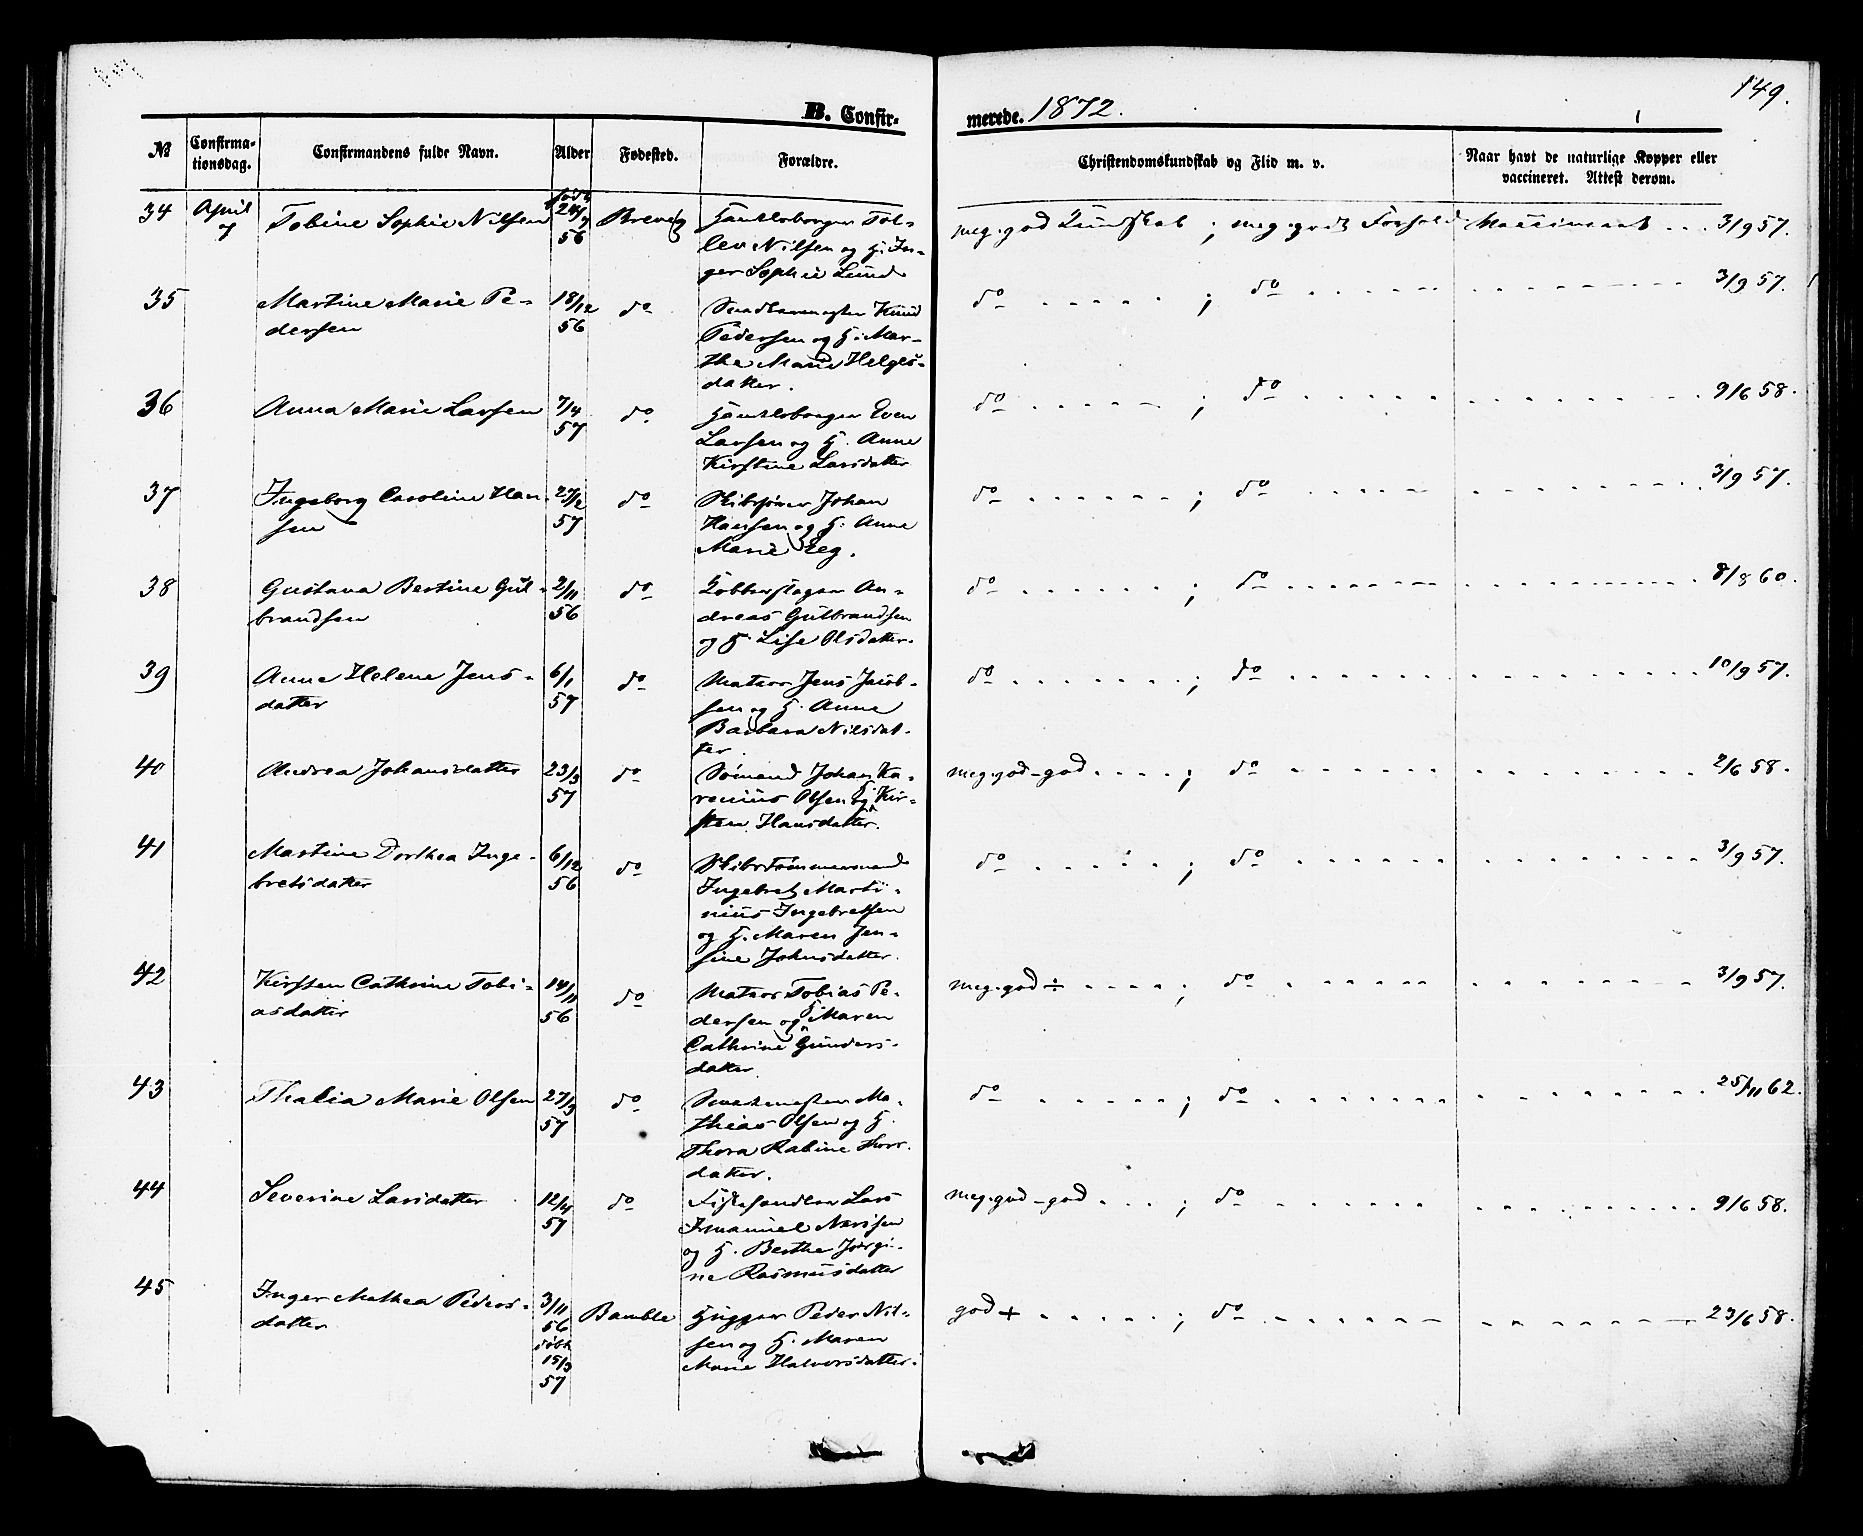 149.
B. Confirmerede. 1872.
№ Confirmationsdag. Confirmandens fulde Navn. Alder Fødested. Forældre. Christendomskundskab og Flid m. v. Naar havt de naturlige Kopper eller vaccineret. Attest derom.
34 April 7 Tobine Sophie Nilsen født 24/9 56 Brevig
Tol-
lev Nilsen og H. In-
ger Sophie Lund
meg.god Kundskab ; meg.godt Forhold Vaccineret . . . 3/9 57.
35 Martine Marie Pe-
dersen
18/12 56 do
Knud
Pedersen og H. Mar-
the Marie Helges-
datter.
do ; do 3/9 57.
36 Anna Marie Larsen 7/4 57 do
Even
Larsen og H. Anne
Kirstine Larsdatter
do ; do 9/6 58.
37 Ingeborg Caroline Han-
sen
27/2 57 do
Skibsfører Johan
Hansen og H. Anne
Marie Eeg.
do ; do 3/9 57.
38 Gustava Bertine Gul-
brandsen
2/11 56 do
Kobberslager An-
dreas Gulbrandsen
og H. Lise Olsdatter.
do ; do 8/8 60.
39 Anne Helene Jens-
datter
6/1 57 do
Matros Jens Jacob-
sen og H. Anne
Barbara Nilsdat-
ter.
do ; do 10/9 57.
40 Andrea Johansdatter 23/3 57 do
Sømand Johan Ka-
renius Olsen og H. Kir-
sten Hansdatter.
meg.god-god ; do 2/6 58.
41 Martine Dorthea Inge-
bretsdatter
6/12 56 do
Skibstømmermand
Ingebret Marti-
nius Ingebretsen
og H. Maren Jen-
sine Johnsdatter.
do ; do 3/9 57.
42 Kirsten Cathrine Tobi-
asdatter
14/11 56 do
Matros Tobias Pe-
dersen og H. Maren
Cathrine Gunders-
datter.
meg.god÷ ; do 3/9 57.
43 Thalia Marie Olsen 27/3 57 do
Ma-
thias Olsen og H.
Thora Rabine Thors-
datter.
do ; do 25/11 62.
44 Severine Larsdatter 12/4 57 do
Fiskehandler Lars
Emanuel Narisen
og H. Berthe Jørgi-
ne Rasmusdatter
meg.god-god ; do 9/6 58.
45 Inger Mathea Peders-
datter
3/11 56 døbt 15/3 57 Bamble
Peder Nil-
sen og H. Maren
Marie Halvorsdatter.
god + ; do 23/6 58.